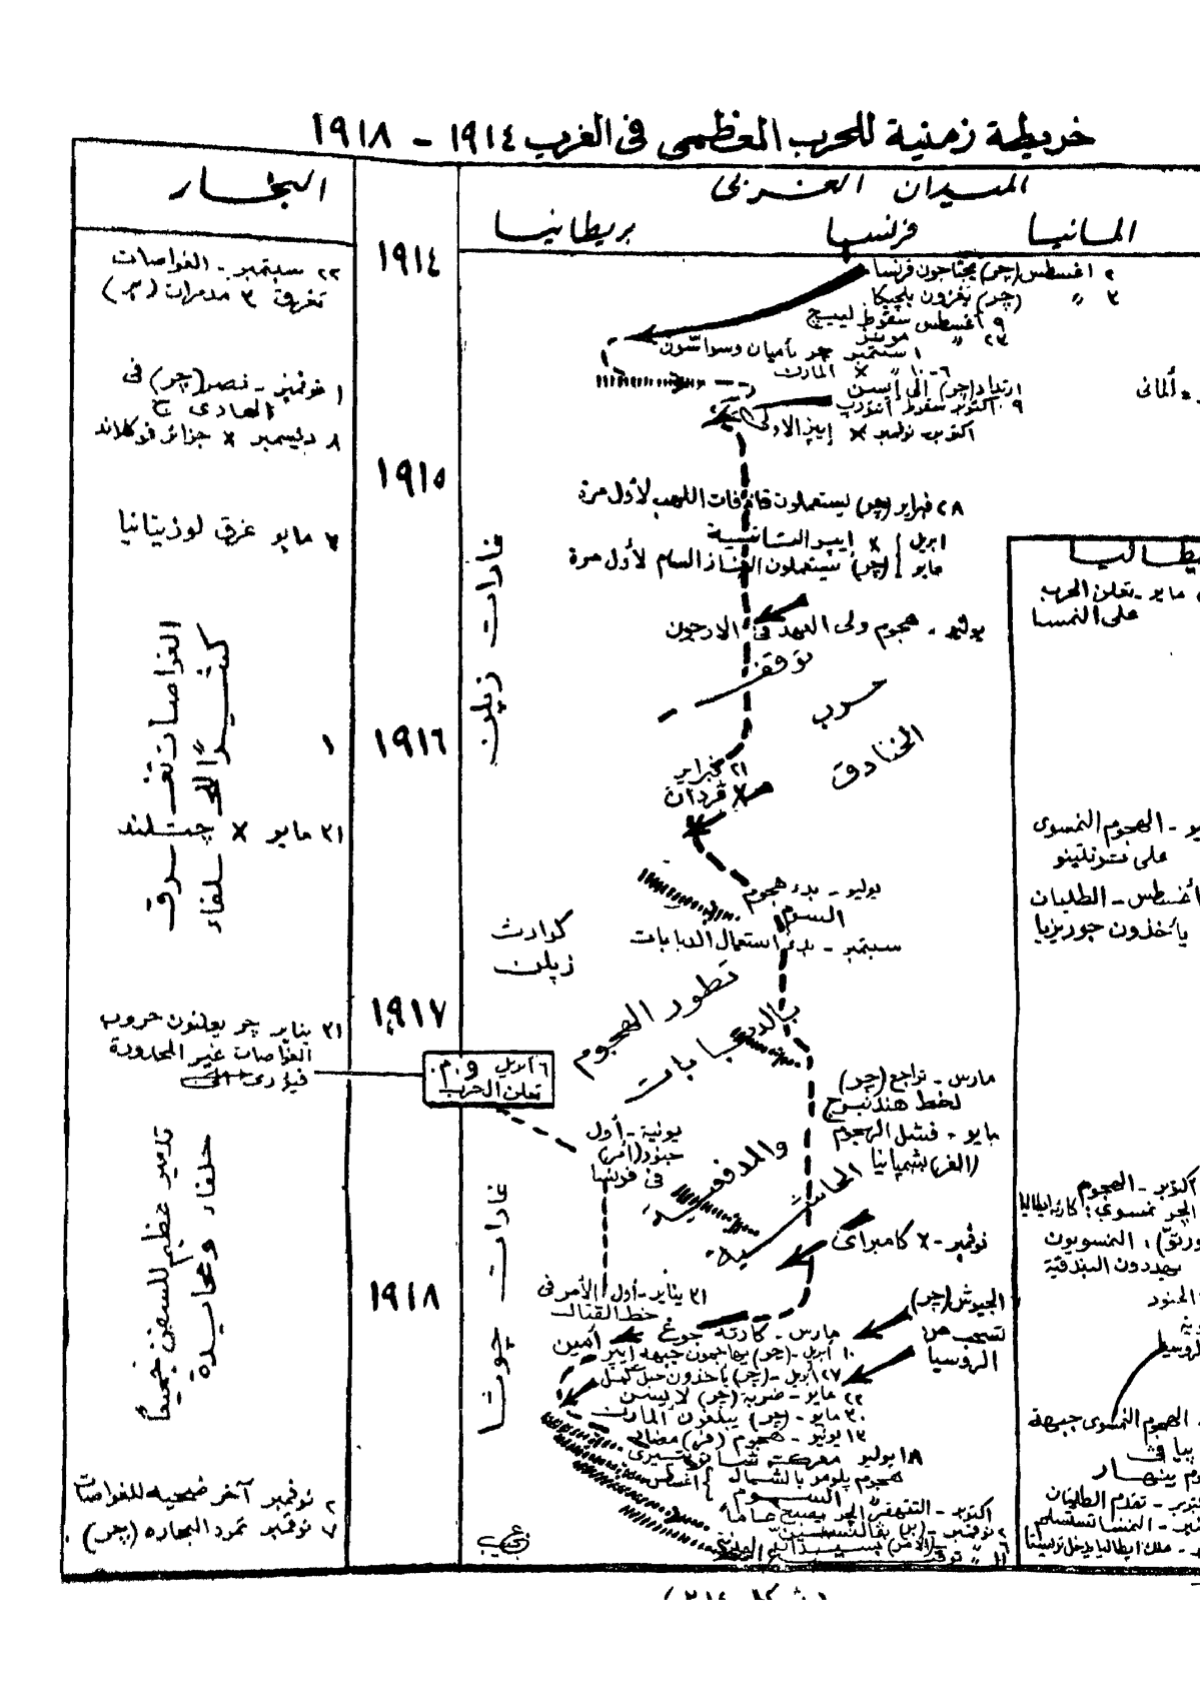 خريطة زمنية للحرب العظمى في الغرب ١٩١٤ - ١٩١٨
الميدان الغربي
المانيا فرنسا بريطانيا
١٩١٤
٢ اغسطس (جر) يجتاحون فرنسا
٣ " (جر) يغزون بلجيكا
٩ أغسطس سقوط لييج
٢٣ " مونز
١ سبتمبر جر بأميان وسواسون
٦-١٠ " x المارن
ارتداد (جر) الى إيسن
٩ اكتوبر سقوط انتورب
اكتوبر - نوفمبر x إيبز الاولى
١٩١٥
٢٨ فبراير (جر) يستعملون قاذفات اللهب لأول مرة
ابريل x إيبر الثانية
مايو (جر) يستعملون الغاز السام لأول مرة
يوليو - هجوم ولى العهد في الارجون
توقف
حرب
الخنادق
غارات زپلن
١٩١٦
٢١ فبراير
x ڤردان
يوليو - بدء هجوم
السوم
سبتمبر - بدء استعمال الدبابات
كوارث
زپلن
تطور الهجوم
بالدبابات
١٩١٧
٦ أبريل و.م.
تعلن الحرب
مارس - تراجع (جر)
لخط هندنبرج
مايو - فشل الهجوم
(الفر) بشمپانيا
يونية - أول
جنود (أمر)
في فرنسا
والمدفعية
نوفمبر - x كامبراى
غارات جوثا
١٩١٨
٣١ يناير - أول الأمر في
خط القتال
الجيوش (جر)
تسحب من
الروسيا
مارس - كارثة جوغ
أمين
١٠ أبريل - (جر) يهاجمون جبهة ايبر
٢٧ أبريل - (جر) يأخذون جبل كمل
٢٢ مايو - ضربة (جر)
٣٠ مايو - (جر) يبلغون المارن
١٣ يونيو - هجوم (فر) مضاد
١٨ يوليو معركة
هجوم پلومر بالشمال
أغسطس
السوم
اكتوبر - التقهقر الجر يصبح عاماً
٢ نوفمبر - (بر) بڤالنسين
٦ " (الأمر) بسيدان
١١ " توقيع الهدنة
نجيب
البحار
٢٢ سبتمبر - الغواصات
تغرق ٣ مدمرات (بر)
١ نوفمبر - نصر (جر) في
الهادى
٨ ديسمبر x جزائر فوكلاند
٧ مايو غرق لوزيتانيا
الغواصات تغرق
كثيراً للحلفاء
٣١ مايو x چتلند
٣١ يناير جر يعلنون حروب
الغواصات غير المحدودة
تدمير عظيم للسفن جميعاً
حلفاء ومحايدة
٢ نوفمبر آخر ضحيه للغواصات
نوفمبر تمرد البحاره (جر)
ألمانى
يطاليا
مايو - تعلن الحرب
على النمسا
يو - الهجوم النمسوى
على ترنتينو
أغسطس - الطليان
يأخذون جوريزيا
اكتوبر - الهجوم
الجر نمسوى: كارثة ايطاليا
النمسويون
يهددون البندقية
الجنود
الهجوم النمسوى جبهة
بياڤ
تقدم الطليان
النمسا تستسلم
ملك ايطاليا يدخل تريستا
(شكل ٢١٤)